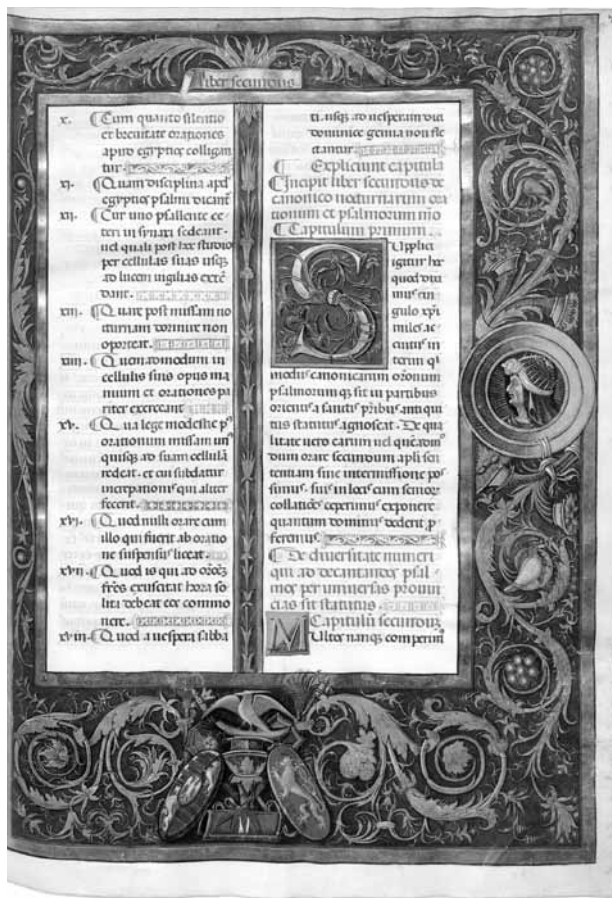 liber secundus
x. ¶ Cum quanto silentio
et breuitate orationes
apud egyptios colligan
tur.
xi. ¶ Quam disciplina apd'
egyptios psalmi dicant'
xii. ¶ Cur uno psallente ce-
teri in synaxi sedeant.
uel quali post hec studio
per cellulas suas usq;
ad lucem uigilias extē
dant.
xiii. ¶ Quare post missam no
cturnam dormire non
oporteat.
xiiii. ¶ Quemadmodum in
cellulis suis opus ma
nuum et orationes pa
riter exerceant
xv. ¶ Qua lege modestie p'
orationum missam un'
quisq; ad suam cellulā
redeat. et cui subdatur
increpationis qui aliter
fecerit.
xvi. ¶ Quod nulli orare cum
illo qui fuerit ab oratio
ne suspensus liceat.
xvii. ¶ Quod is qui ad orōēs
frēs excitat hora so
lita debeat eos commo
nere.
xviii. ¶ Quod a uespera sabba
ti. usq; ad uesperam diei
dominice genua non fle
ctantur.
¶ Expliciunt capitula
¶ Incipit liber secundus de
canonico nocturnarum ora
tionum et psalmorum mō
¶ Capitulum primum.
Duplici
igitur hoc
quod dixi
mus cin
gulo xp̄i
miles ac
cinctus in
terim q̄
modus canonicarum orōnum
psalmorumq; sit in partibus
orientis a sanctis pribus antiqui
tus statutus agnoscat. De qua
litate uero earum uel quēadm̄o
dum orare secundum apli sen
tentiam sine intermissione pos
simus. suis in locis cum seniorū
collatiōes ceperimus exponere
quantum dominus dederit, p
feremus.
¶ De diuersitate numeri
qui ad decantandos psal-
mos per uniuersas prouin
cias sit statutus.
¶ Capitulū secundū
Multos namq; comperim'